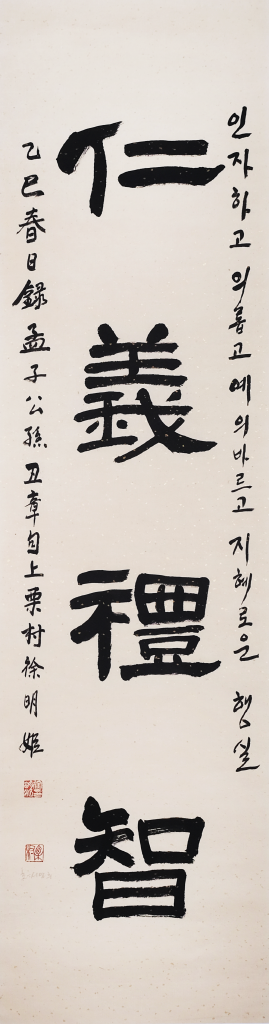 인자하고 의롭고 예의바르고 지혜로운 행실
仁義禮智
乙巳春日錄孟子公孫丑章句上栗村徐明姬